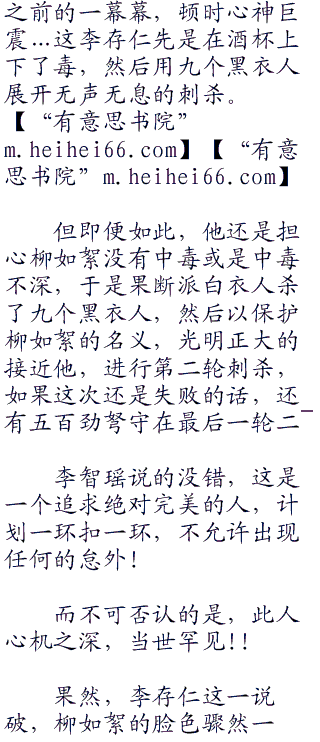 之前的一幕幕，顿时心神巨
震…这李存仁先是在酒杯上
下了毒，然后用九个黑衣人
展开无声无息的刺杀。
【“有意思书院”
m.heihei66.com】【“有意
思书院”m.heihei66.com】
但即便如此，他还是担
心柳如絮没有中毒或是中毒
不深，于是果断派白衣人杀
了九个黑衣人，然后以保护
柳如絮的名义，光明正大的
接近他，进行第二轮刺杀，
如果这次还是失败的话，还
有五百劲弩守在最后一轮二
李智瑶说的没错，这是
一个追求绝对完美的人，计
划一环扣一环，不允许出现
任何的怠外！
而不可否认的是，此人
心机之深，当世罕见！！
果然，李存仁这一说
破，柳如絮的脸色骤然一